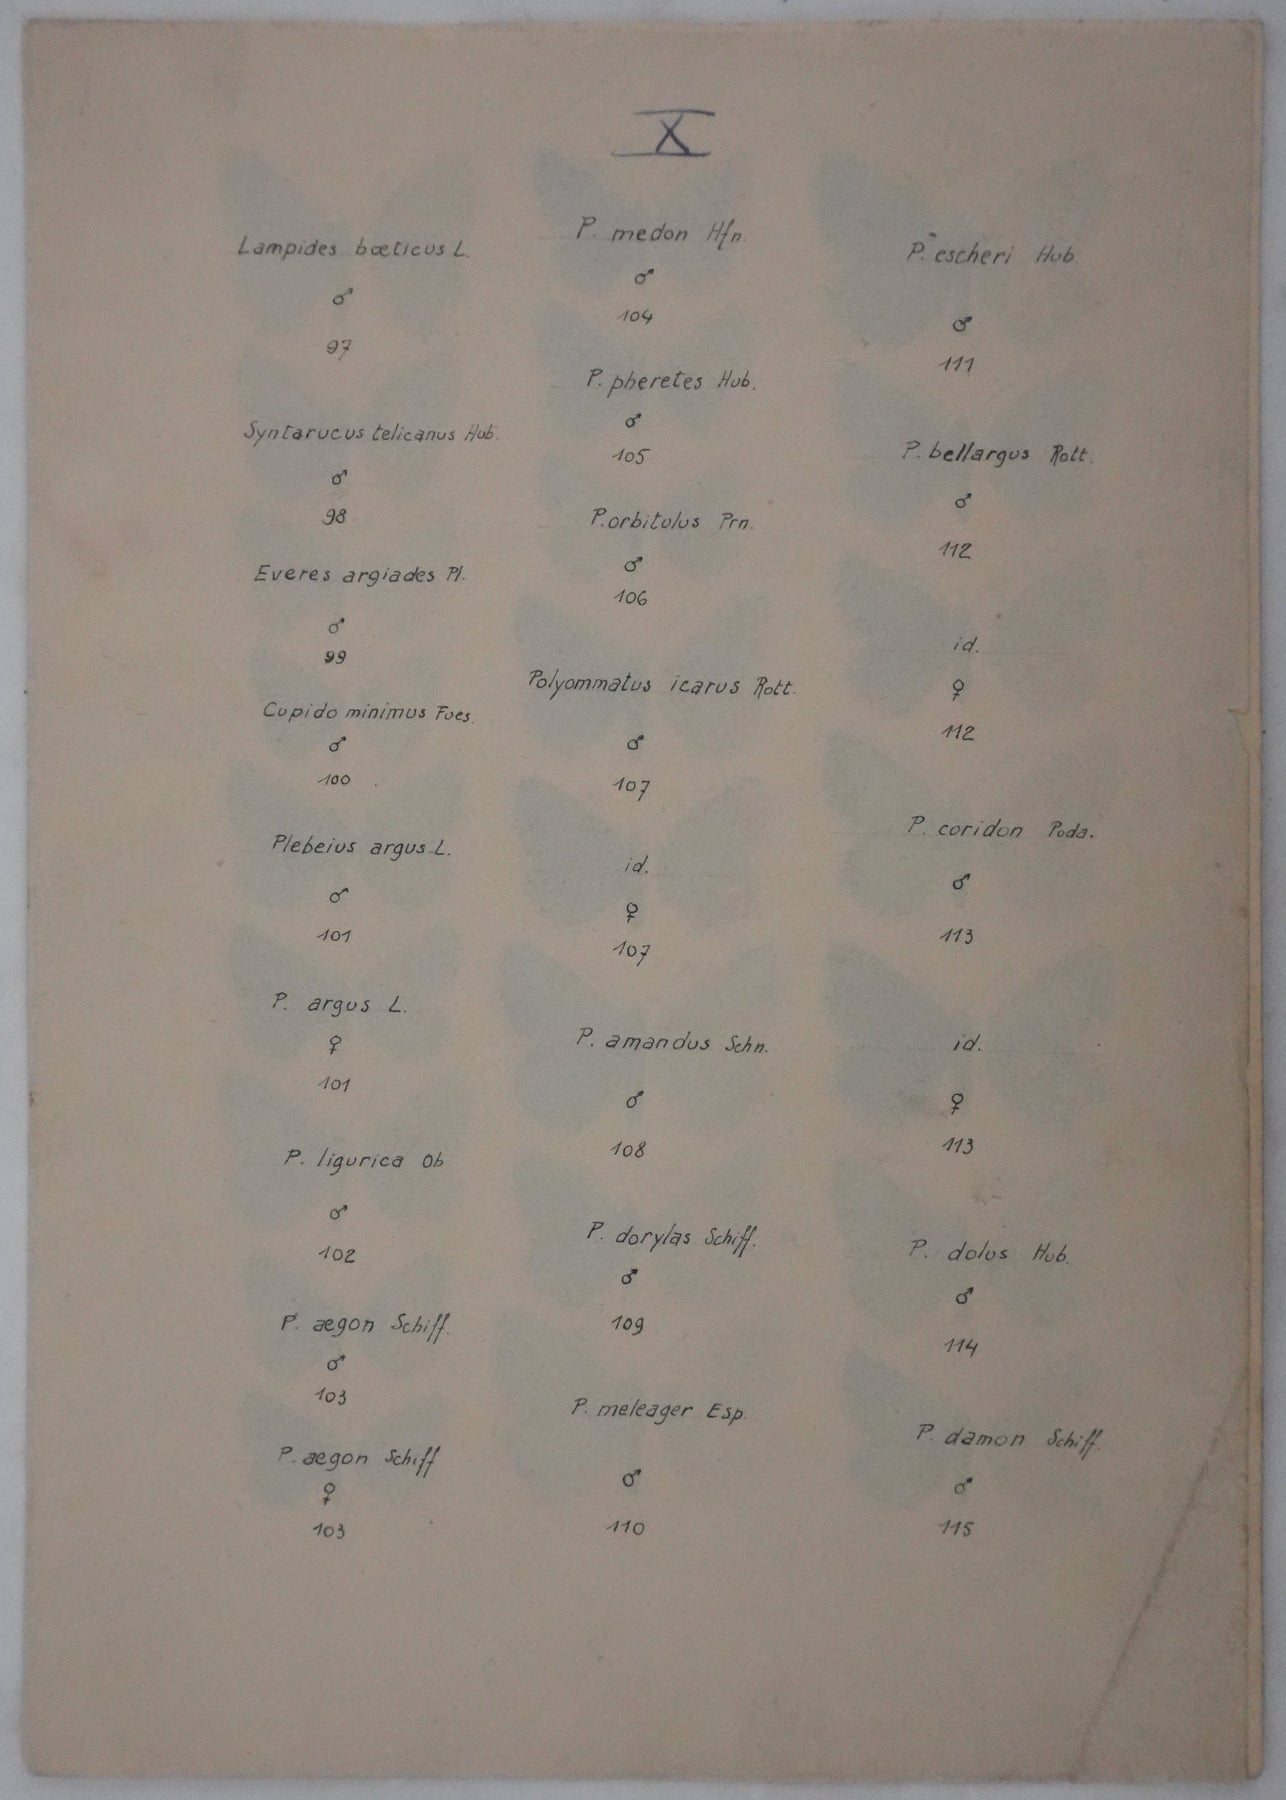 X
Lampides bœticus L.
♂
97
Syntarucus telicanus Hub.
♂
98
Everes argiades Pl.
♂
99
Cupido minimus Fues.
♂
100
Plebeius argus L.
♂
101
P. argus L.
♀
101
P. ligurica Ob
♂
102
P. ægon Schiff.
♂
103
P. ægon Schiff
♀
103
P. medon Hfn.
♂
104
P. pheretes Hub.
♂
105
P. orbitulus Prn.
♂
106
Polyommatus icarus Rott.
♂
107
id.
♀
107
P. amandus Schn.
♂
108
P. dorylas Schiff.
♂
109
P. meleager Esp.
♂
110
P. escheri Hub.
♂
111
P. bellargus Rott.
♂
112
id.
♀
112
P. coridon Poda.
♂
113
id.
♀
113
P. dolus Hub.
♂
114
P. damon Schiff.
♂
115